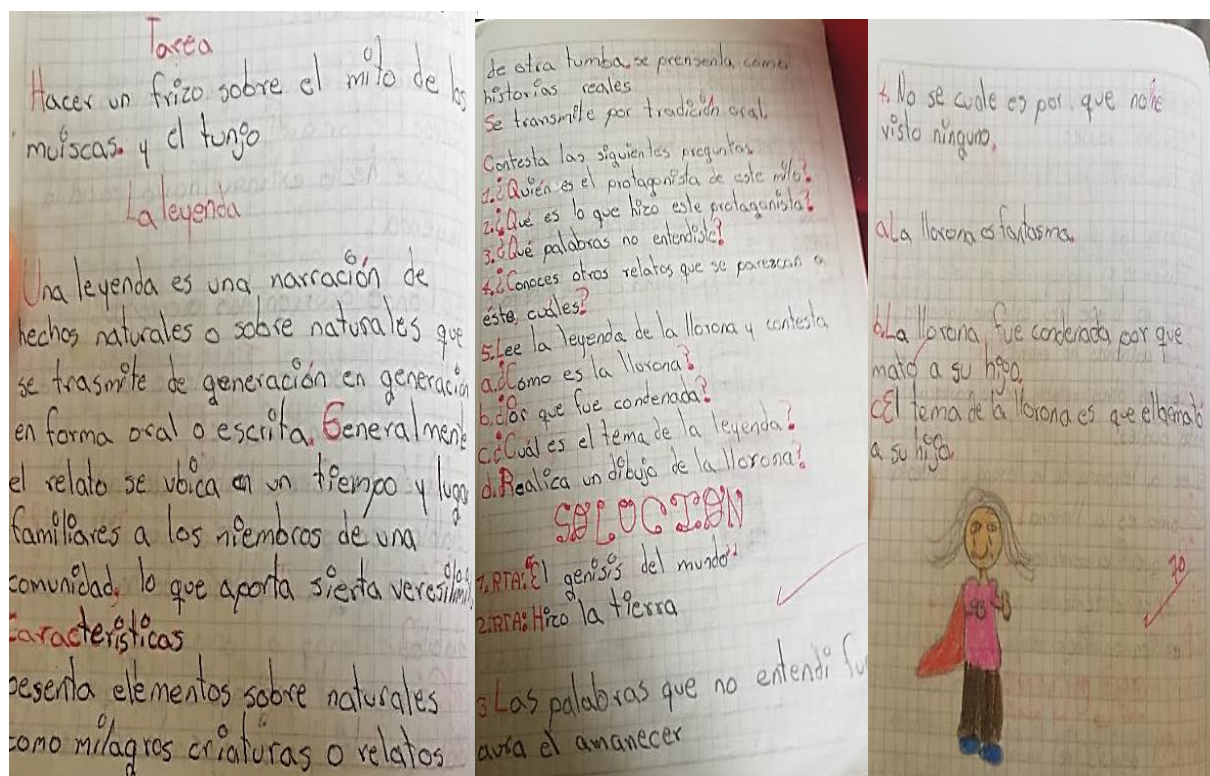 Tarea
Hacer un frizo sobre el mito de los
muiscas. y el tunjo
La leyenda
Una leyenda es una narración de
hechos naturales o sobre naturales que
se trasmite de generación en generación
en forma oral o escrita. Generalmente
el relato se ubica en un tiempo y lugar
familiares a los miembros de una
comunidad, lo que aporta sierta
Características
como milagros criaturas o relatos
de otra tumba, se prensenta como
historias reales
Se transmite por tradición oral.
Contesta las siguientes preguntas
1. ¿Quién es el protagonista de este mito?
2. ¿Qué es lo que hizo este protagonista?
3. ¿Qué palabras no entendiste?
4. ¿Conoces otros relatos que se parezcan a
éste, cuáles?
5. Lee la leyenda de la llorona y contesta
a. ¿Como es la llorona?
b. ¿Por que fue condenada?
c. ¿Cuál es el tema de la leyenda?
d. Realica un dibujo de la llorona?
SOLOCION
1. RTA: El genisis del mundo
2. RTA: Hizo la tierra
3 Las palabras que no entendi
el amanecer
4. No se cuale es por que no he
visto ninguno.
a La llorona es fantasma.
b. La llorona fue condenada por que
mato a su higo.
c El tema de la llorona es que
a su higo.